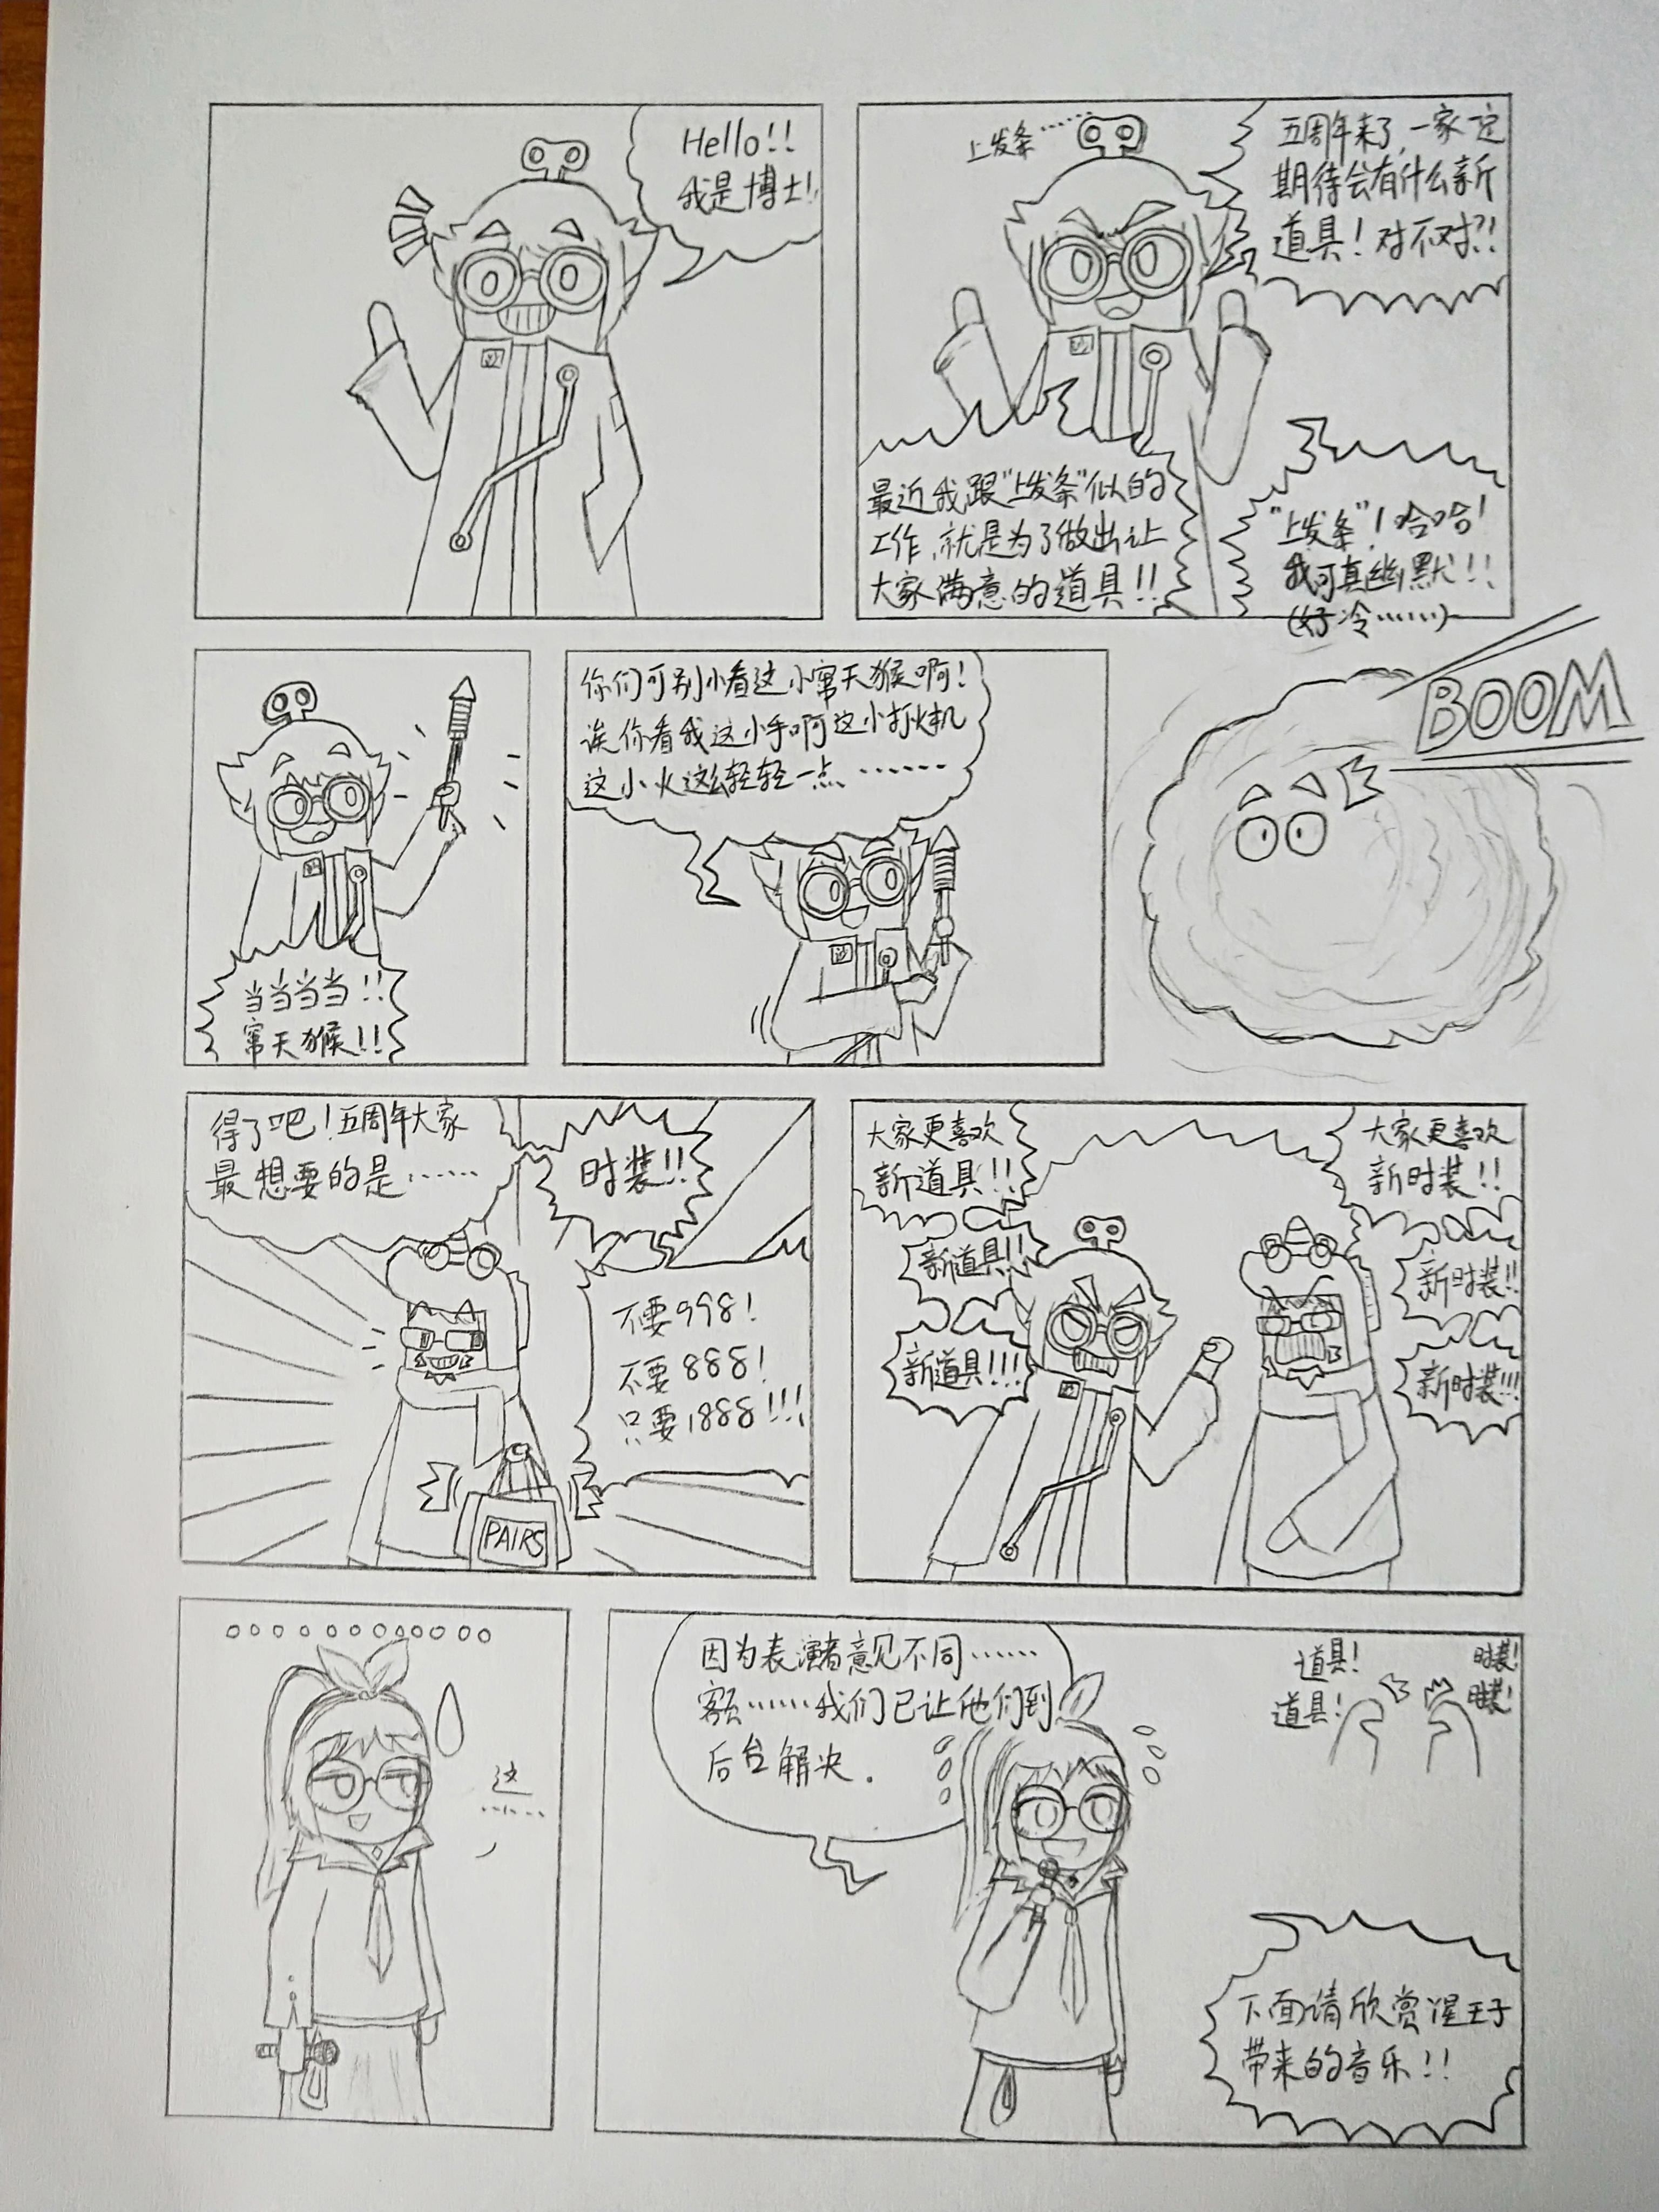 Hello!!
我是博士!
上发条……
五周年来了,一家一定
期待会有什么新
道具!对不对?!
最近我跟"上发条"似的
工作,就是为了做出让
大家满意的道具!!
"上发条"!哈哈!
我可真幽默!!
(好冷……)
当当当当!!
窜天猴!!
你们可别小看这小窜天猴啊!
诶你看我这小手啊这小打火机
这小火这么轻轻一点……
BOOM
得了吧!五周年大家
最想要的是……
时装!!
不要998!
不要888!
只要1888!!!
PAIRS
大家更喜欢
新道具!!
新道具!!
新道具!!!
大家更喜欢
新时装!!
新时装!!
新时装!!!
这
……
因为表演者意见不同……
额……我们已让他们到
后台解决.
道具!
道具!
时装!
时装!
下面请欣赏渥王子
带来的音乐!!